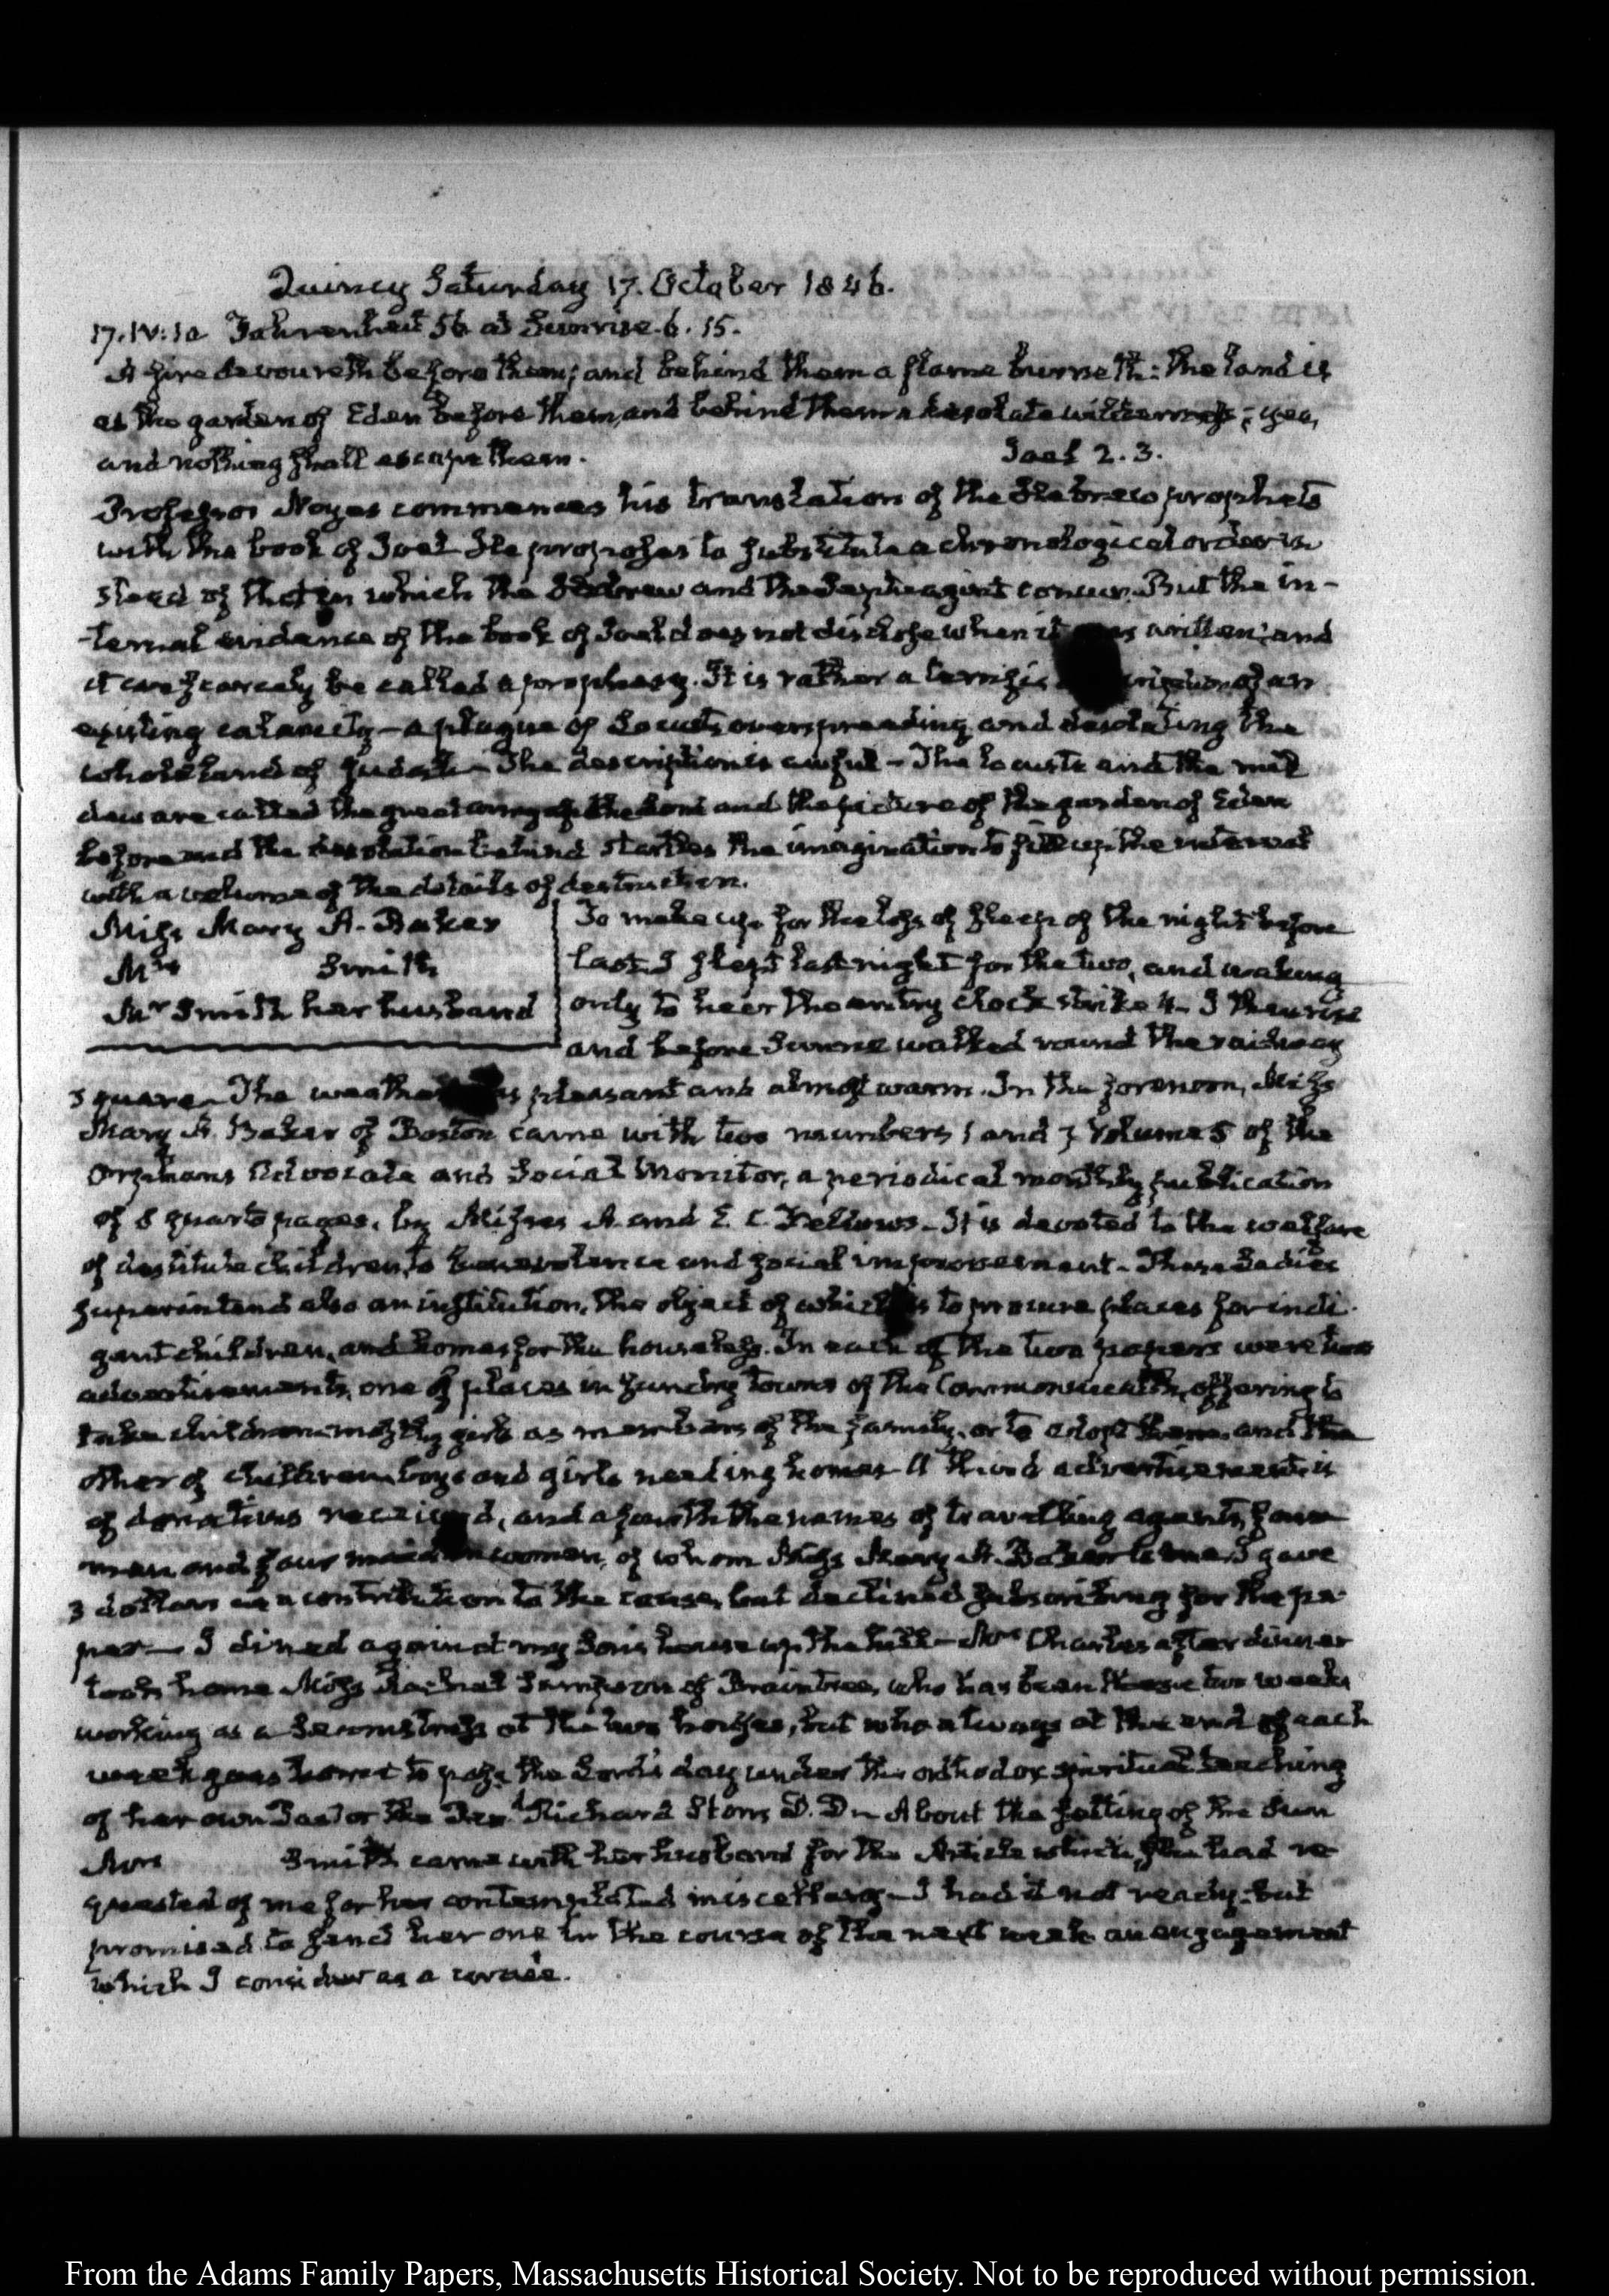 Quincy Saturday 17. October 1846.
17. IV:10 Fahrenheit 56 at Sunrise. 6. 15.
A fire devoureth before them; and behind them a flame burneth: the land is
as the garden of Eden before them, and behind them a desolate wilderness; yea,
and nothing shall escape them. Joel 2. 3.
Professor Noyes commences his translation of the Hebrew prophets
with the book of Joel He proposes to substitute a chronological order in
stead of that in which the Hebrew and the Septuagint concur. But the in-
-ternal evidence of the book of Joel does not disclose when it was written; and
it can scarcely be called a prophesy. It is rather a terrific description of an
existing calamity—a plague of Locusts overspreading and desolating the
whole land of Judah—The description is awful—The locusts and the mil
dew are called the great army of the Lord and the picture of the garden of Eden
before and the desolation behind startles the imagination to fill up the interval
with a volume of the details of destruction.
Miss Mary A. Baker
Mrs Smith
Mr Smith her husband
To make up for the loss of sleep of the night before
last I slept last night for the two, and waking
only to hear the entry clock strike 4— I then rose
and before Sunrise walked round the railway
square—The weather was pleasant and almost warm. In the forenoon, Miss
Mary A. Baker of Boston came with two numbers 1 and 7 Volume 5 of the
Orphans Advocate and Social Monitor, a periodical monthly publication
of 8 quarto pages, by Misses A. and E. C. Fellows—It is devoted to the welfare
of destitute children, to benevolence and social improvement—These Ladies
superintend also an institution, the object of which is to procure places for indi-
gent children, and homes for the houseless. In each of the two papers were two
advertisements, one of places in sundry towns of the Commonwealth, offering to
take children mostly girls as members of the family, or to adopt them, and the
other of children boys and girls needing homes—A third advertisement is
of donations received, and a fourth the names of travelling agents, four
men and four women, of whom Miss Mary A. Baker is one. I gave
3 dollars as a contribution to the cause, but declined subscribing for the pa-
per—I dined again at my Son's house up the hill—Mrs Charles after dinner
took home Miss Rachel Simpson of Braintree, who has been these two weeks
working as a Seamstress at the two houses, but who always at the end of each
week goes home to pass the Lord's day under the orthodox spiritual teaching
of her own Pastor the Revd. Richard Storrs D. D— About the setting of the Sun
Mrs Smith came with her husband for the Article which she had re-
quested of me for her contemplated miscellany—I had it not ready; but
promised to send her one in the course of the next week an engagement
which I consider as a
From the Adams Family Papers, Massachusetts Historical Society. Not to be reproduced without permission.